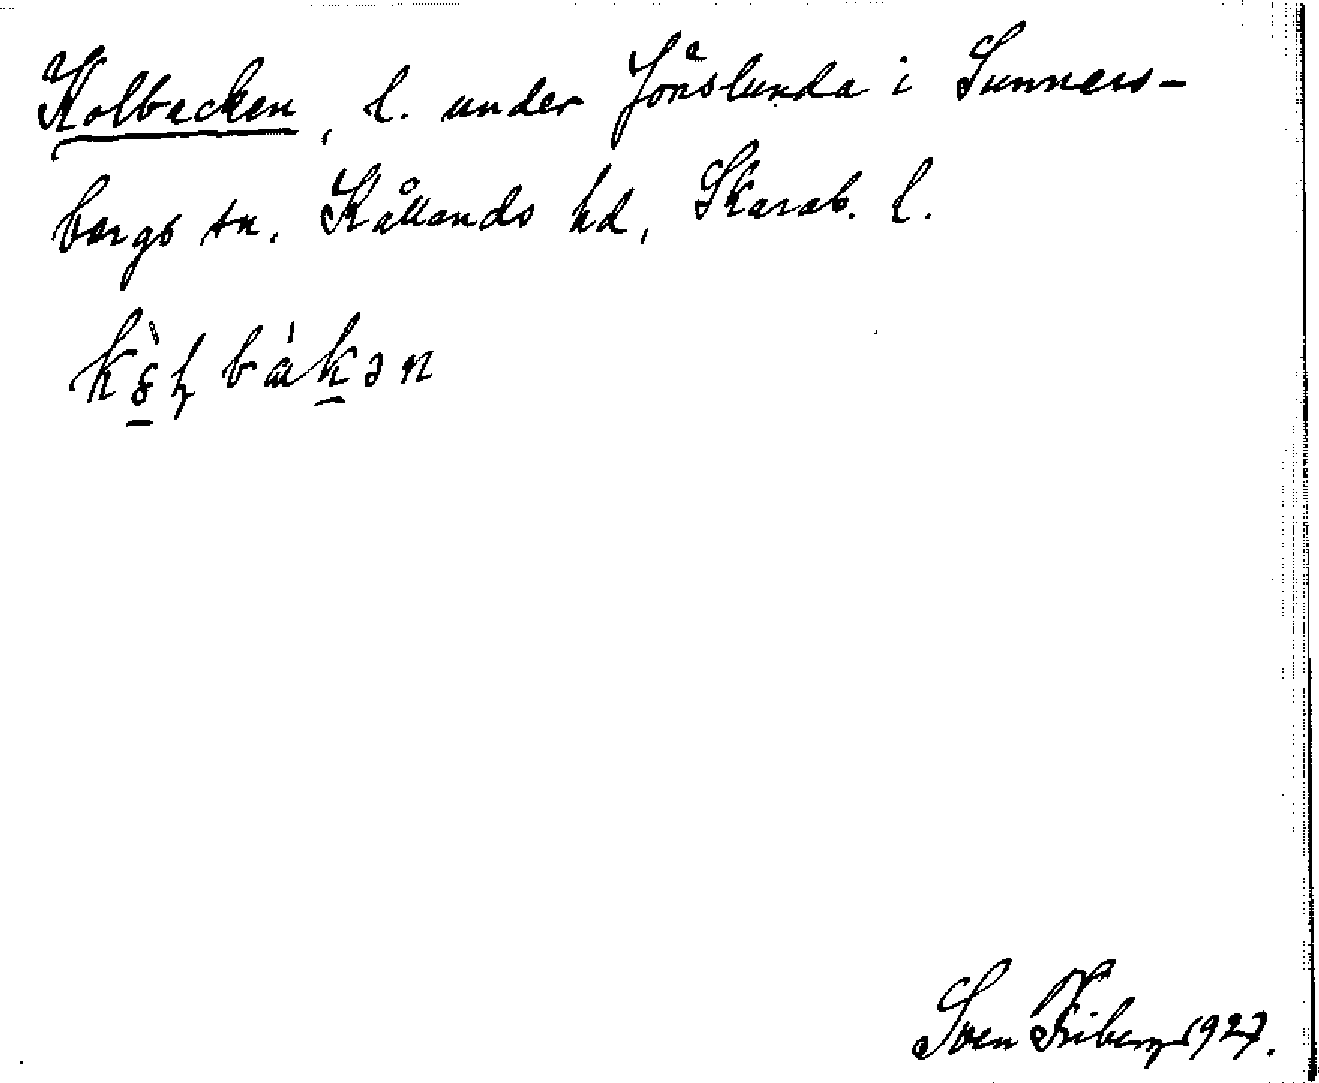 Kolbacken, l. under Jönslunda i Sunners-
bergs sn. Kållands hd, Skarab. l.
Sven Friberg 1927.